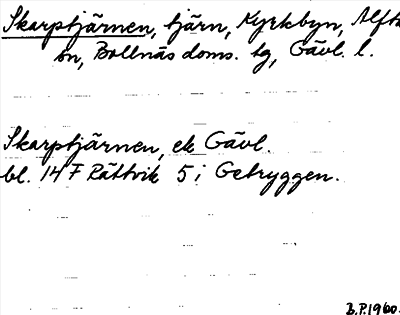 Skarptjärnen, tjärn, Kyrkbyn, Alfta
sn, Bollnäs doms. tg, Gävl. l.
Skarptjärnen, ek Gävl.
bl. 14 F Rättvik 5 i Getryggen.
B.P. 1960.